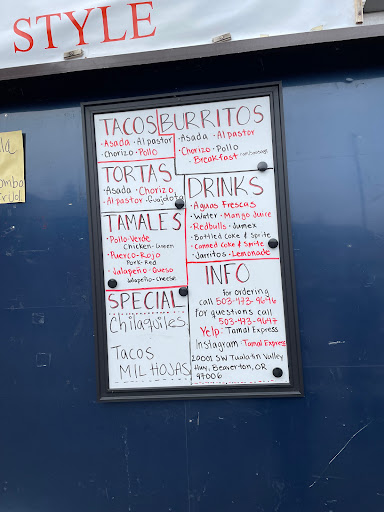 STYLE
TACOS
• Asada • Al pastor
• Chorizo • Pollo
BURRITOS
• Asada • Al pastor
• Chorizo • Pollo
• Breakfast
TORTAS
Asada • Chorizo
• Al pastor
TAMALES
• Pollo-Verde
Chicken-Green
• Puerco-Rojo
Pork-Red
• Jalapeño-Queso
Jalapeño-Cheese
DRINKS
• Aguas Frescas
• Water • Mango Juice
• Redbulls • Jumex
• Bottled Coke & Sprite
• Canned Coke & Sprite
• Jarritos • Lemonade
SPECIAL
Chilaquiles
TACOS
MIL HOJAS
INFO
for ordering
call 503-473-9696
for questions call
503-473-9697
Yelp: Tamal Express
Instagram: Tamal Express
20001 SW Tualatin Valley
Hwy, Beaverton, OR
97006